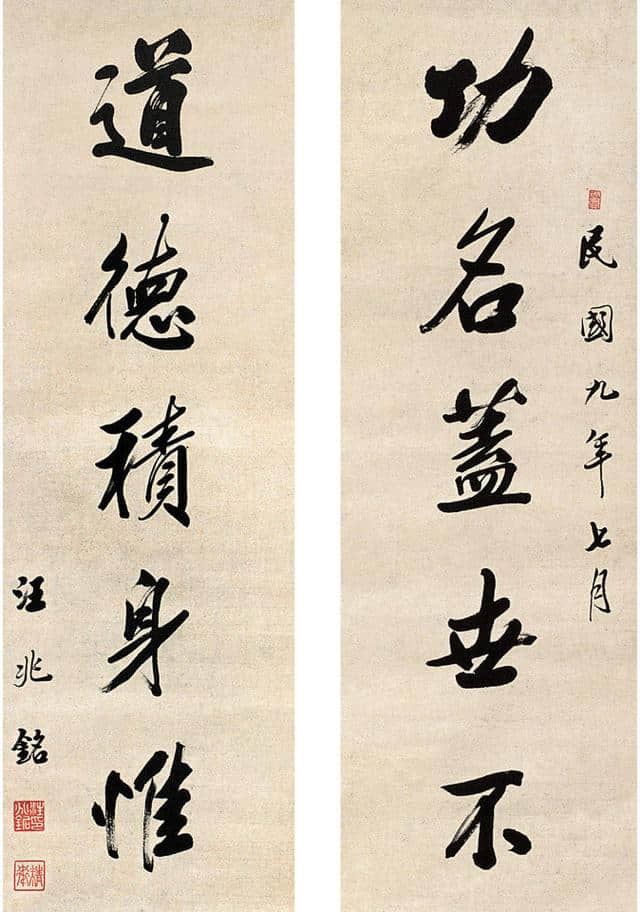 民國九年七月
功名蓋世不
道德積身惟
汪兆銘